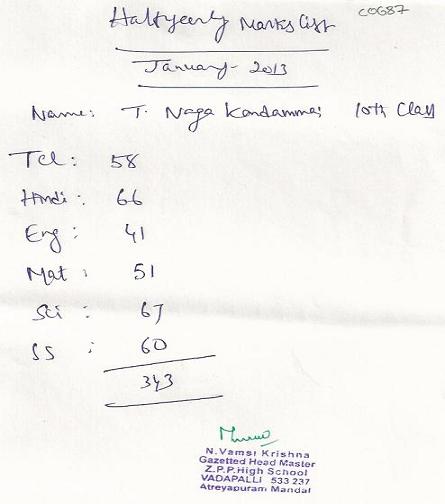 Halfyearly Marks list
C0687
January - 2013
Name: T. Naga Kondamma 10th Class
Tel: 58
Hindi: 66
Eng: 41
Mat: 51
Sci: 67
SS: 60
343
N.Vamsi Krishna
Gazetted Head Master
Z.P.P.High School
VADAPALLI 533 237
Atreyapuram Mandal